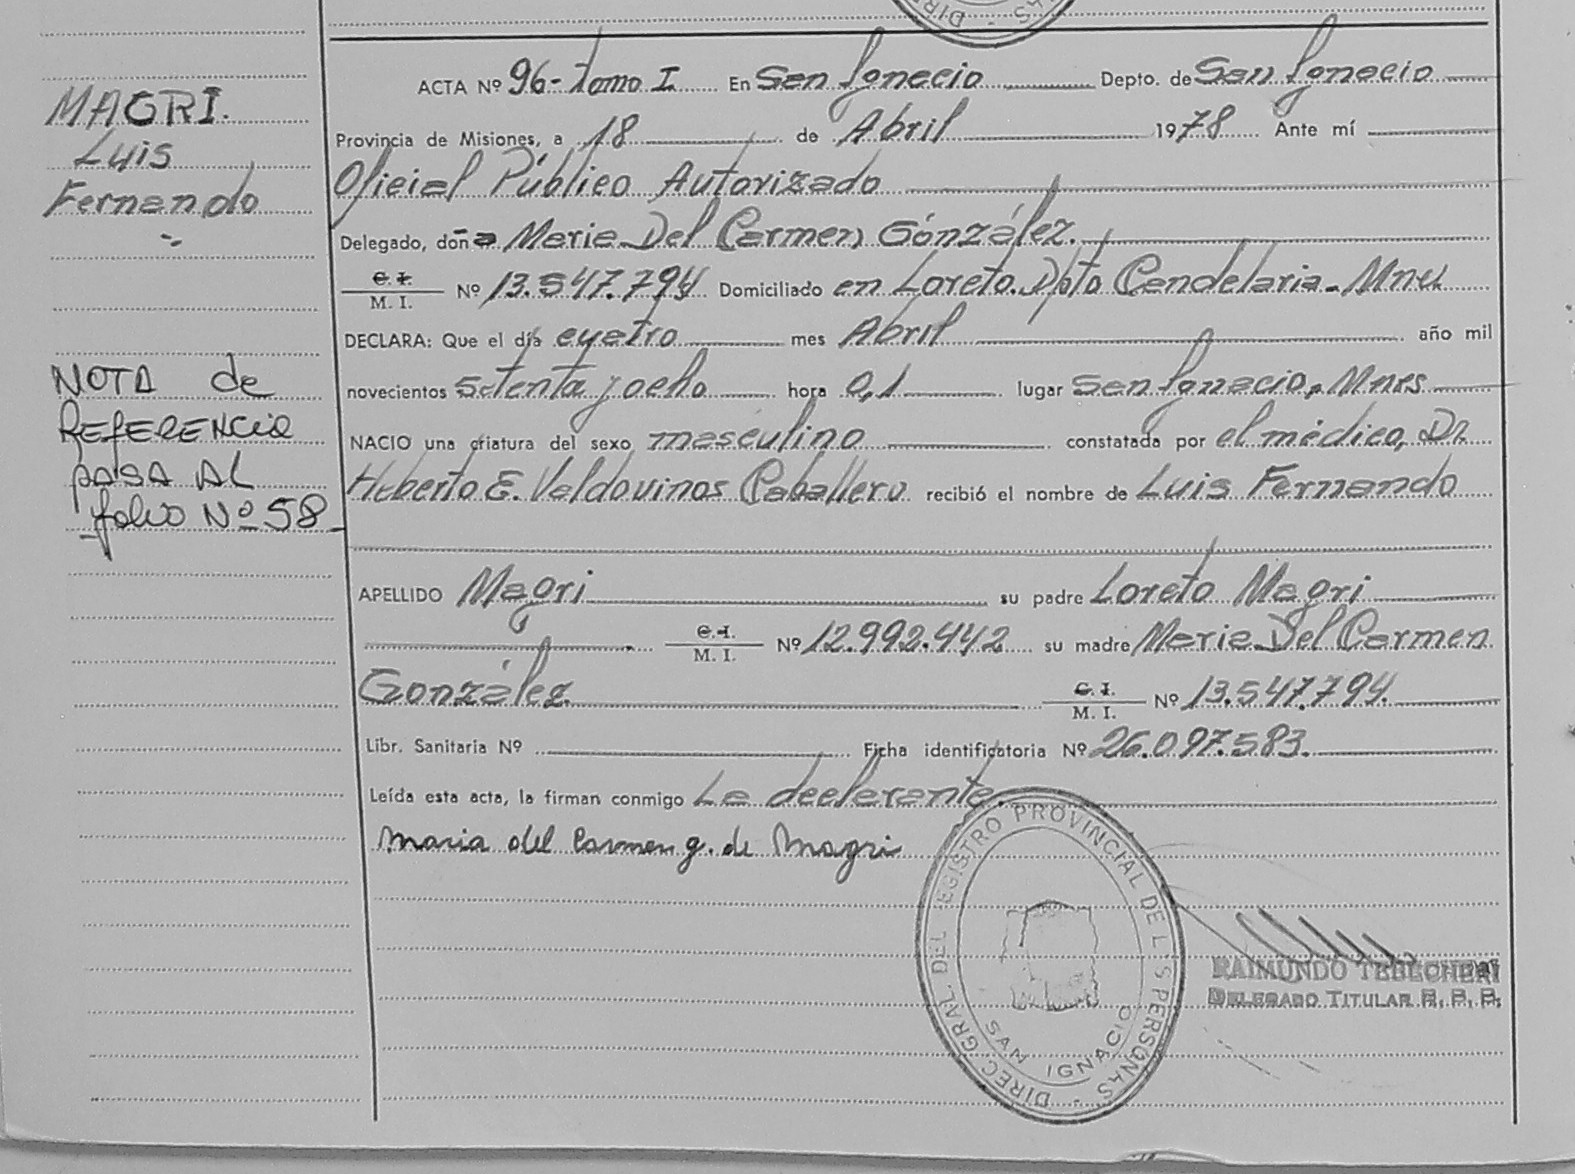 MAGRI.
Luis
Fernando
NOTA de
REFERENCIA
PASA AL
folio Nº 58
ACTA Nº 96 - Tomo I En San Ignacio Depto. de San Ignacio
Provincia de Misiones, a 18 de Abril 1978 Ante mí
Oficial Público Autorizado
Delegado, doña Maria Del Carmen González.
C. I.
M. I. Nº 13.547.794 Domiciliado en Loreto. Dpto Candelaria - Mnes
DECLARA: Que el día cuatro mes Abril año mil
novecientos setenta y ocho hora 0,1 lugar San Ignacio, Mnes
NACIO una criatura del sexo masculino constatada por el médico, Dr.
Heberto E. Valdovinos Caballero recibió el nombre de Luis Fernando
APELLIDO Magri su padre Loreto Magri
C. I.
M. I. Nº 12.992.442 su madre Maria Del Carmen
González C. I.
M. I. Nº 13.547.794.
Libr. Sanitaria Nº Ficha identificatoria Nº 26.097.583.
Leída esta acta, la firman conmigo La declarante.
Maria del Carmen g. de Magri
DIREC. GRAL. DEL REGISTRO PROVINCIAL DE L S PERSONAS
SAN IGNACIO
RAIMUNDO
DELEGADO TITULAR R. P. P.